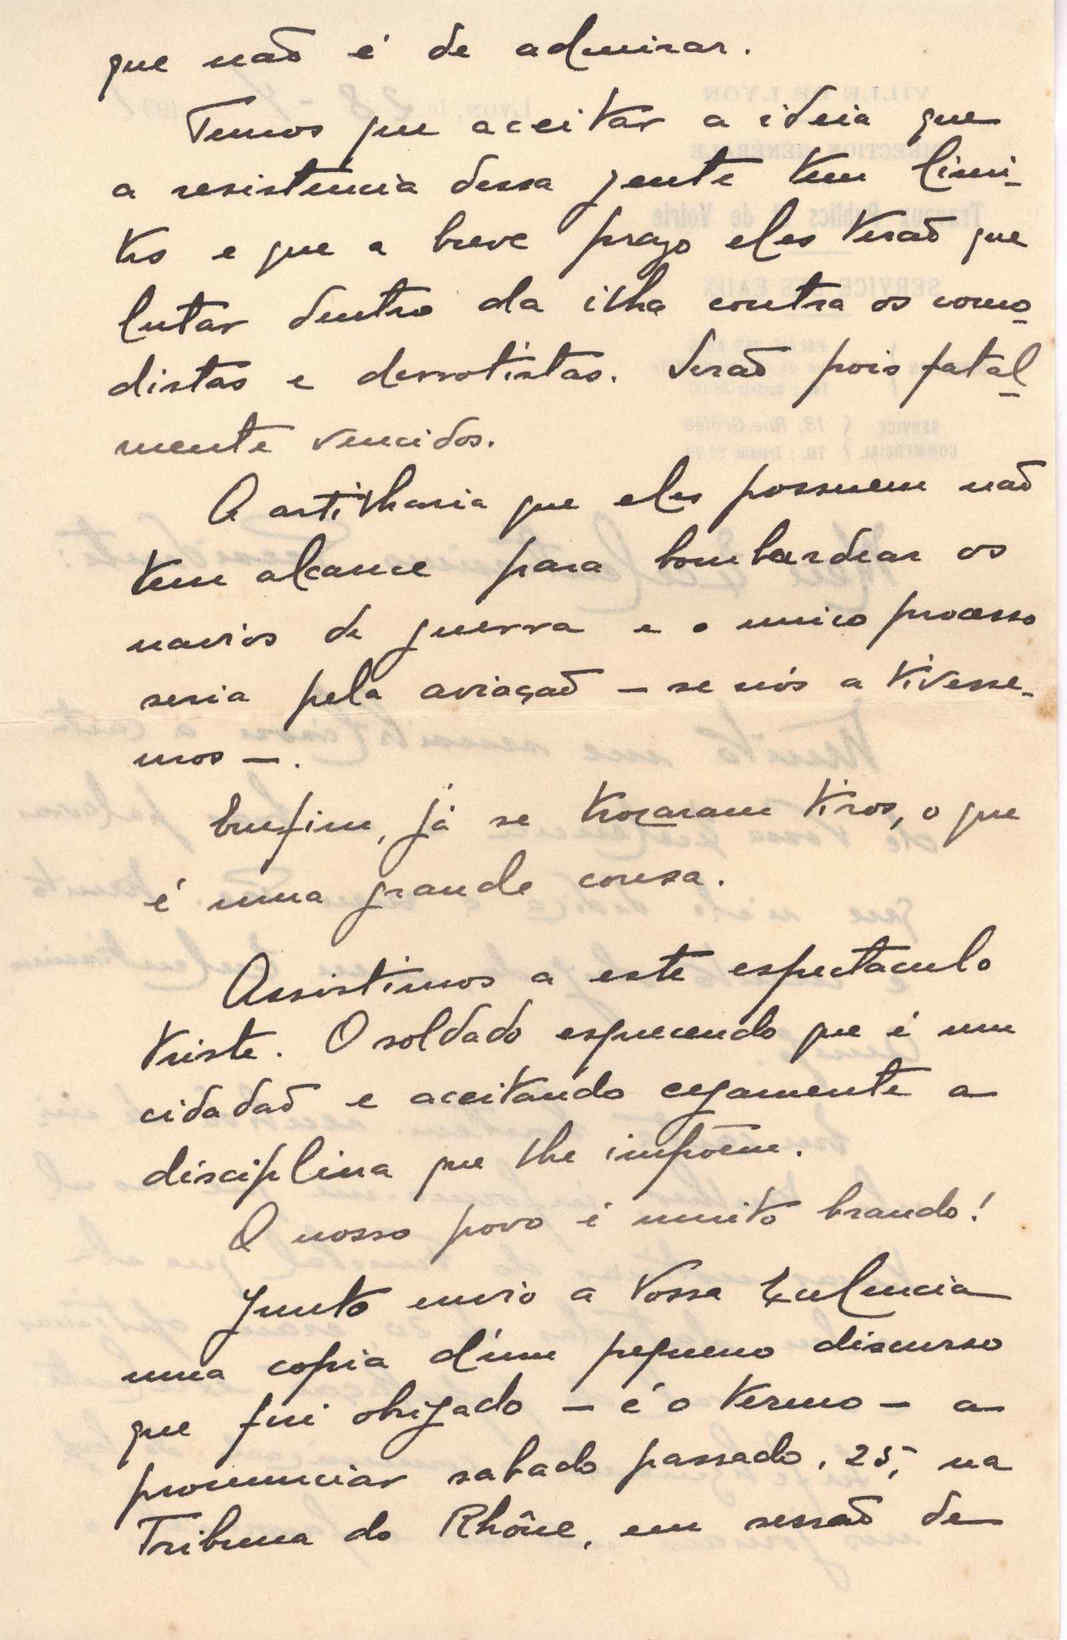 que não é de admirar.
Temos que aceitar a ideia que
a resistencia dessa gente tem limi-
tes e que a breve prazo eles terão que
lutar dentro da ilha contra os como-
distas e derrotistas. Serão pois fatal-
mente vencidos.
A artilharia que eles possuem não
tem alcance para bombardear os
navios de guerra e o unico processo
seria pela aviação – se nós a tivesse-
mos –.
Emfim, já se trocaram tiros, o que
é uma grande cousa.
Assistimos a este espectaculo
triste. O soldado esquecendo que é um
cidadão e aceitando cegamente a
disciplina que lhe impõem.
O nosso povo é muito brando!
Junto envio a Vossa Excelencia
uma copia d'um pequeno discurso
que fui obrigado – é o termo – a
pronunciar sabado passado, 25, na
Tribuna do Rhône, em sessão de